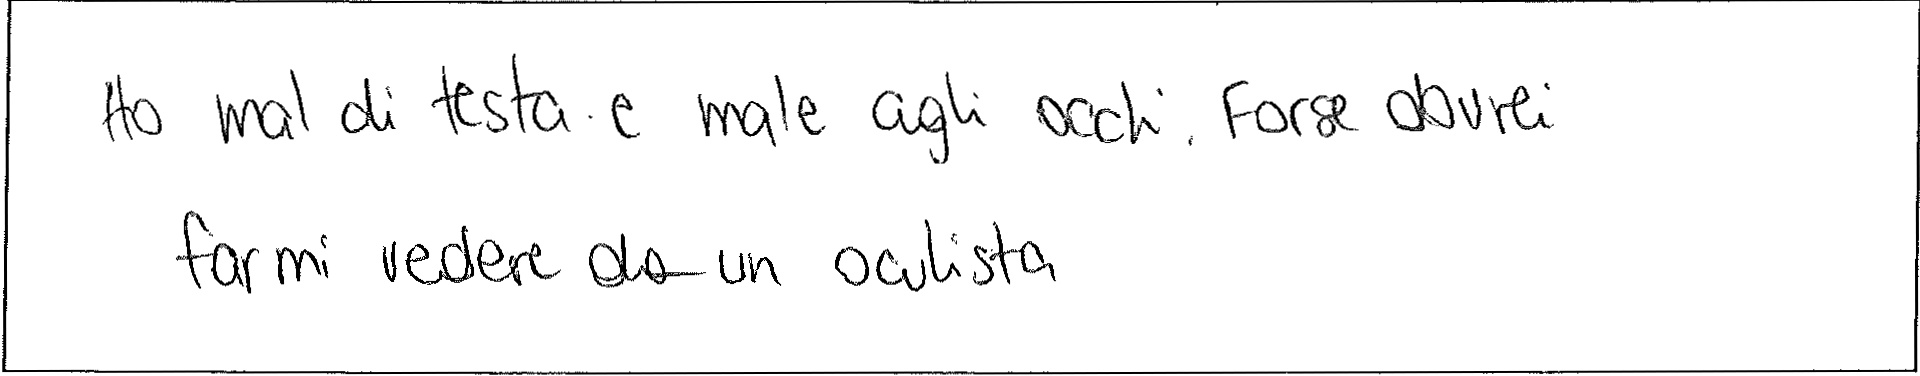 Ho mal di testa e male agli occhi. Forse dovrei
farmi vedere da un oculista